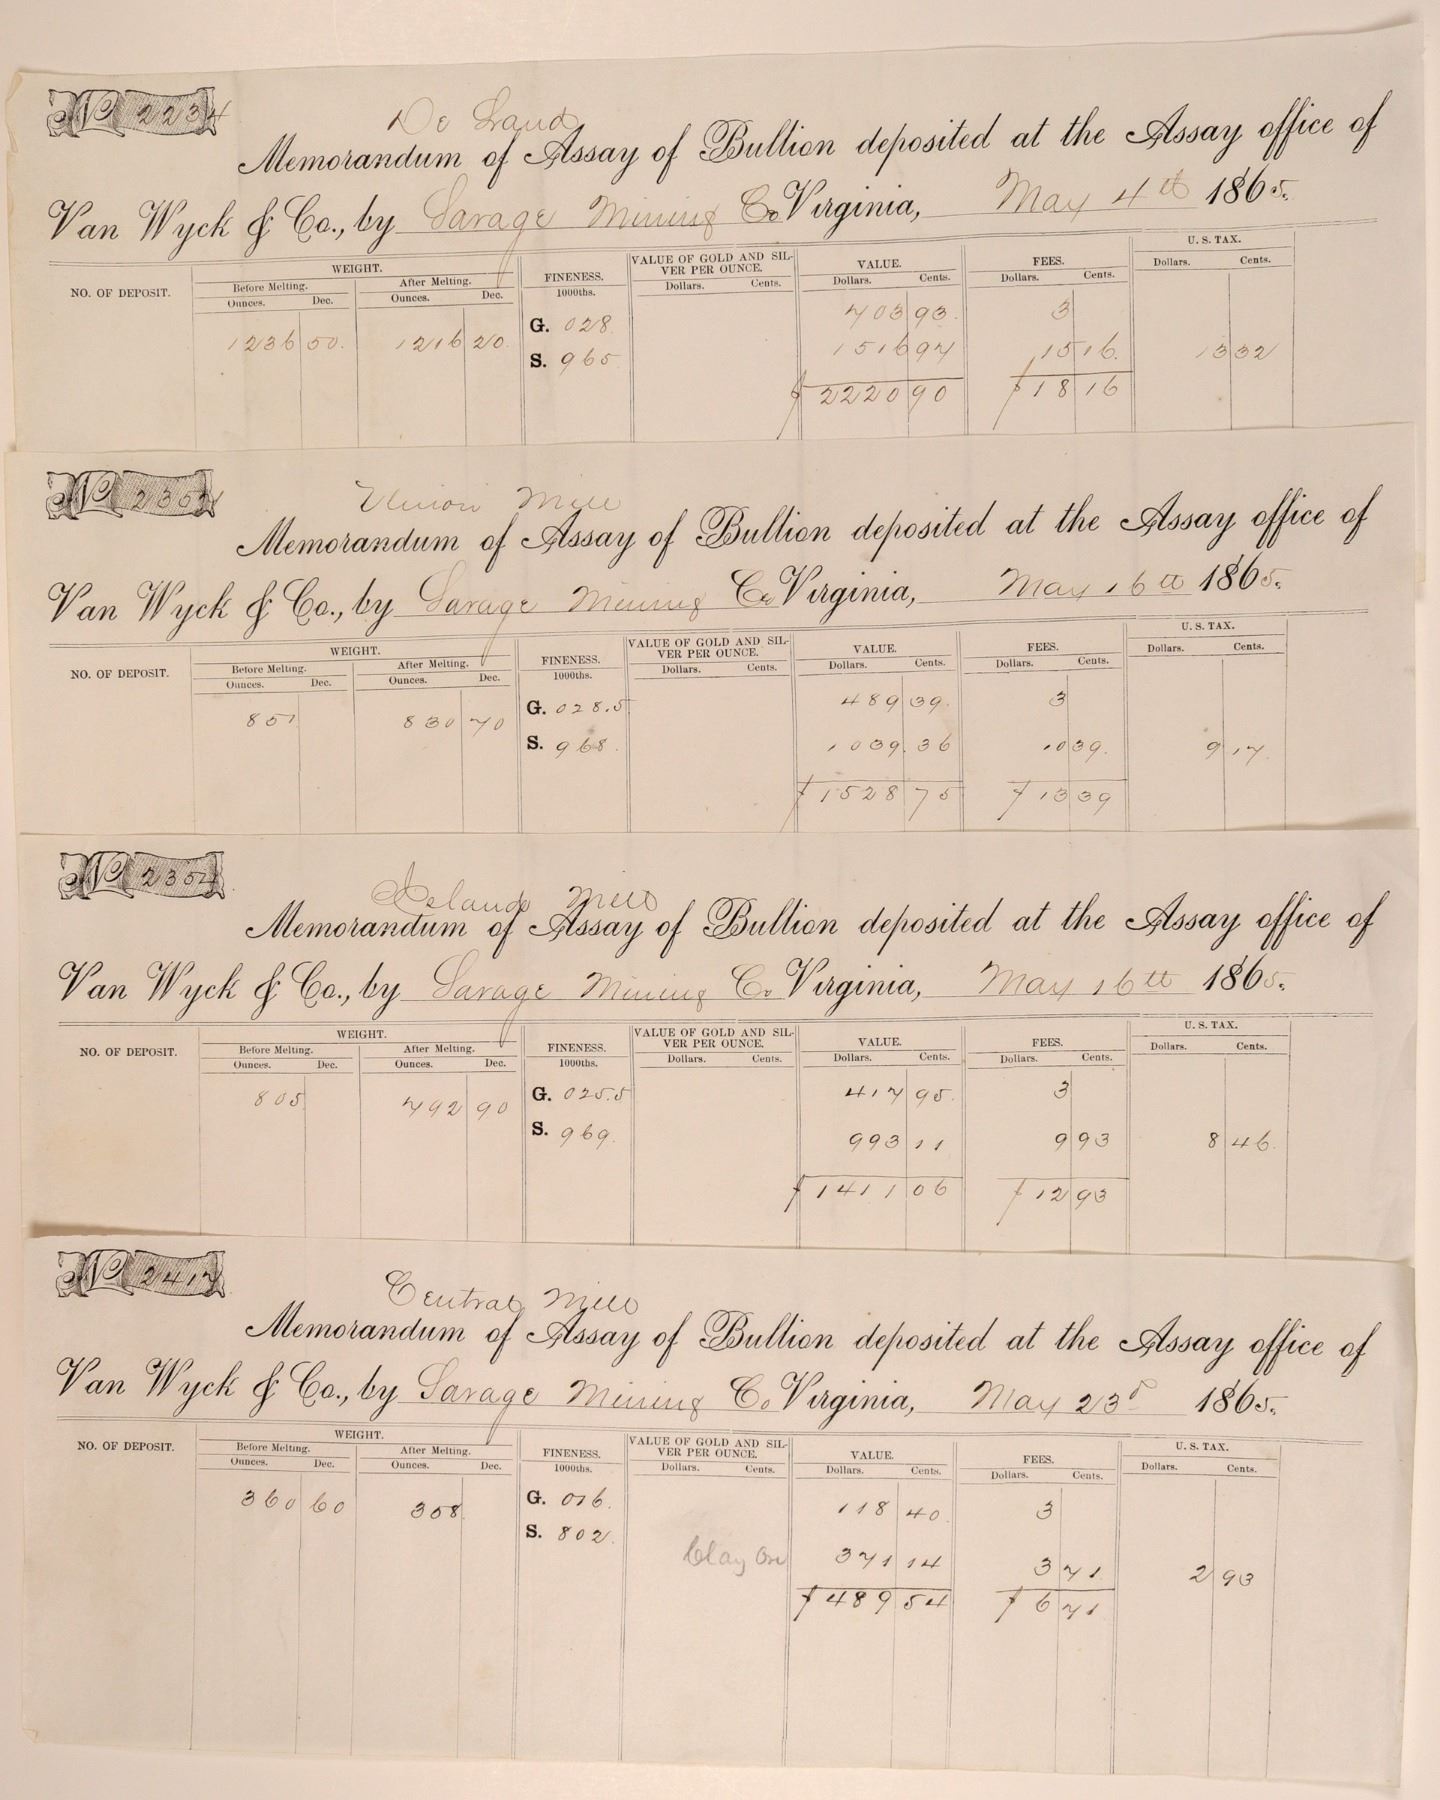 No 2234
De Land
Memorandum of Assay of Bullion deposited at the Assay office of
Van Wyck & Co., by Savage Mining Co Virginia, May 4th 1865.
NO. OF DEPOSIT. WEIGHT. FINENESS. VALUE OF GOLD AND SILVER PER OUNCE. VALUE. FEES. U. S. TAX.
Before Melting. After Melting. 1000ths. Dollars. Cents. Dollars. Cents. Dollars. Cents. Dollars. Cents.
Ounces. Dec. Ounces. Dec.
1236 50. 1216 20. G. 028. 703 93. 3
S. 965 1516 97 15 16. 13 32
$ 2220 90 $ 18 16
No
Union Mill
Memorandum of Assay of Bullion deposited at the Assay office of
Van Wyck & Co., by Savage Mining Co Virginia, May 16th 1865.
NO. OF DEPOSIT. WEIGHT. FINENESS. VALUE OF GOLD AND SILVER PER OUNCE. VALUE. FEES. U. S. TAX.
Before Melting. After Melting. 1000ths. Dollars. Cents. Dollars. Cents. Dollars. Cents. Dollars. Cents.
Ounces. Dec. Ounces. Dec.
851 830 70 G. 028.5 489 39. 3
S. 968. 1039 36 10 39. 9 17.
$ 1528 75 $ 13 39
No 2354
Deland Mill
Memorandum of Assay of Bullion deposited at the Assay office of
Van Wyck & Co., by Savage Mining Co Virginia, May 16th 1865.
NO. OF DEPOSIT. WEIGHT. FINENESS. VALUE OF GOLD AND SILVER PER OUNCE. VALUE. FEES. U. S. TAX.
Before Melting. After Melting. 1000ths. Dollars. Cents. Dollars. Cents. Dollars. Cents. Dollars. Cents.
Ounces. Dec. Ounces. Dec.
805 792 90 G. 025.5 417 95. 3
S. 969. 993 11 9 93 8 46.
$ 1411 06 $ 12 93
No 2417
Central Mill
Memorandum of Assay of Bullion deposited at the Assay office of
Van Wyck & Co., by Savage Mining Co Virginia, May 23d 1865.
NO. OF DEPOSIT. WEIGHT. FINENESS. VALUE OF GOLD AND SILVER PER OUNCE. VALUE. FEES. U. S. TAX.
Before Melting. After Melting. 1000ths. Dollars. Cents. Dollars. Cents. Dollars. Cents. Dollars. Cents.
Ounces. Dec. Ounces. Dec.
360 60 358. G. 016. 118 40. 3
S. 802. Clay Ore 371 14 3 71 2 93
$ 489 54 $ 6 71